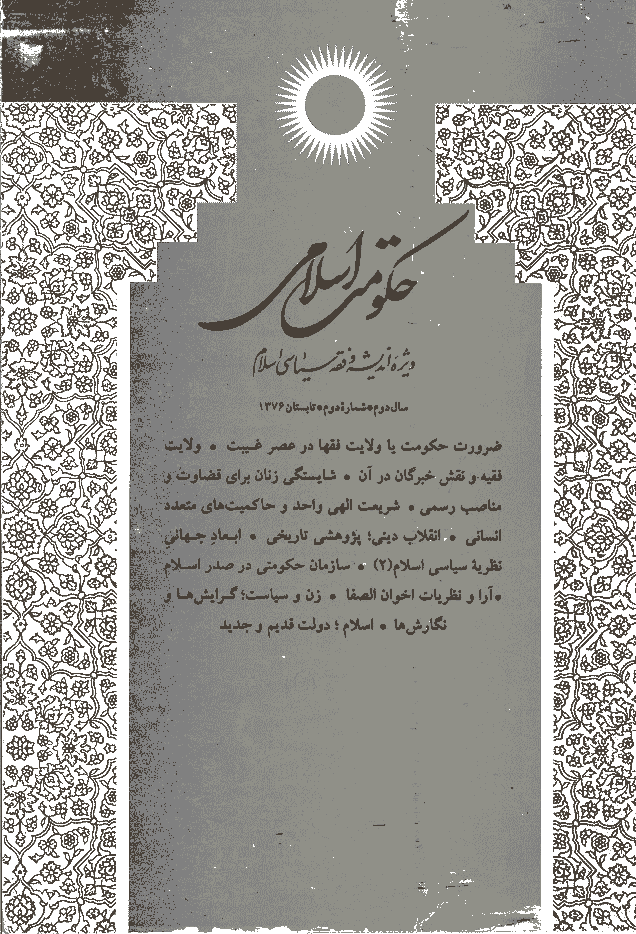 حکومت اسلامی
ویژه اندیشه و فقه سیاسی اسلام
سال دوم•شمارهٔ دوم•تابستان ۱۳۷۶
ضرورت حکومت یا ولایت فقها در عصر غیبت • ولایت
فقیه و نقش خبرگان در آن • شایستگی زنان برای قضاوت و
مناصب رسمی • شریعت الهی واحد و حاکمیت‌های متعدد
انسانی • انقلاب دینی؛ پژوهشی تاریخی • ابعاد جهانی
نظریهٔ سیاسی اسلام(۲) • سازمان حکومتی در صدر اسلام
•آرا و نظریات اخوان الصفا • زن و سیاست؛ گرایش‌ها و
نگارش‌ها • اسلام؛ دولت قدیم و جدید